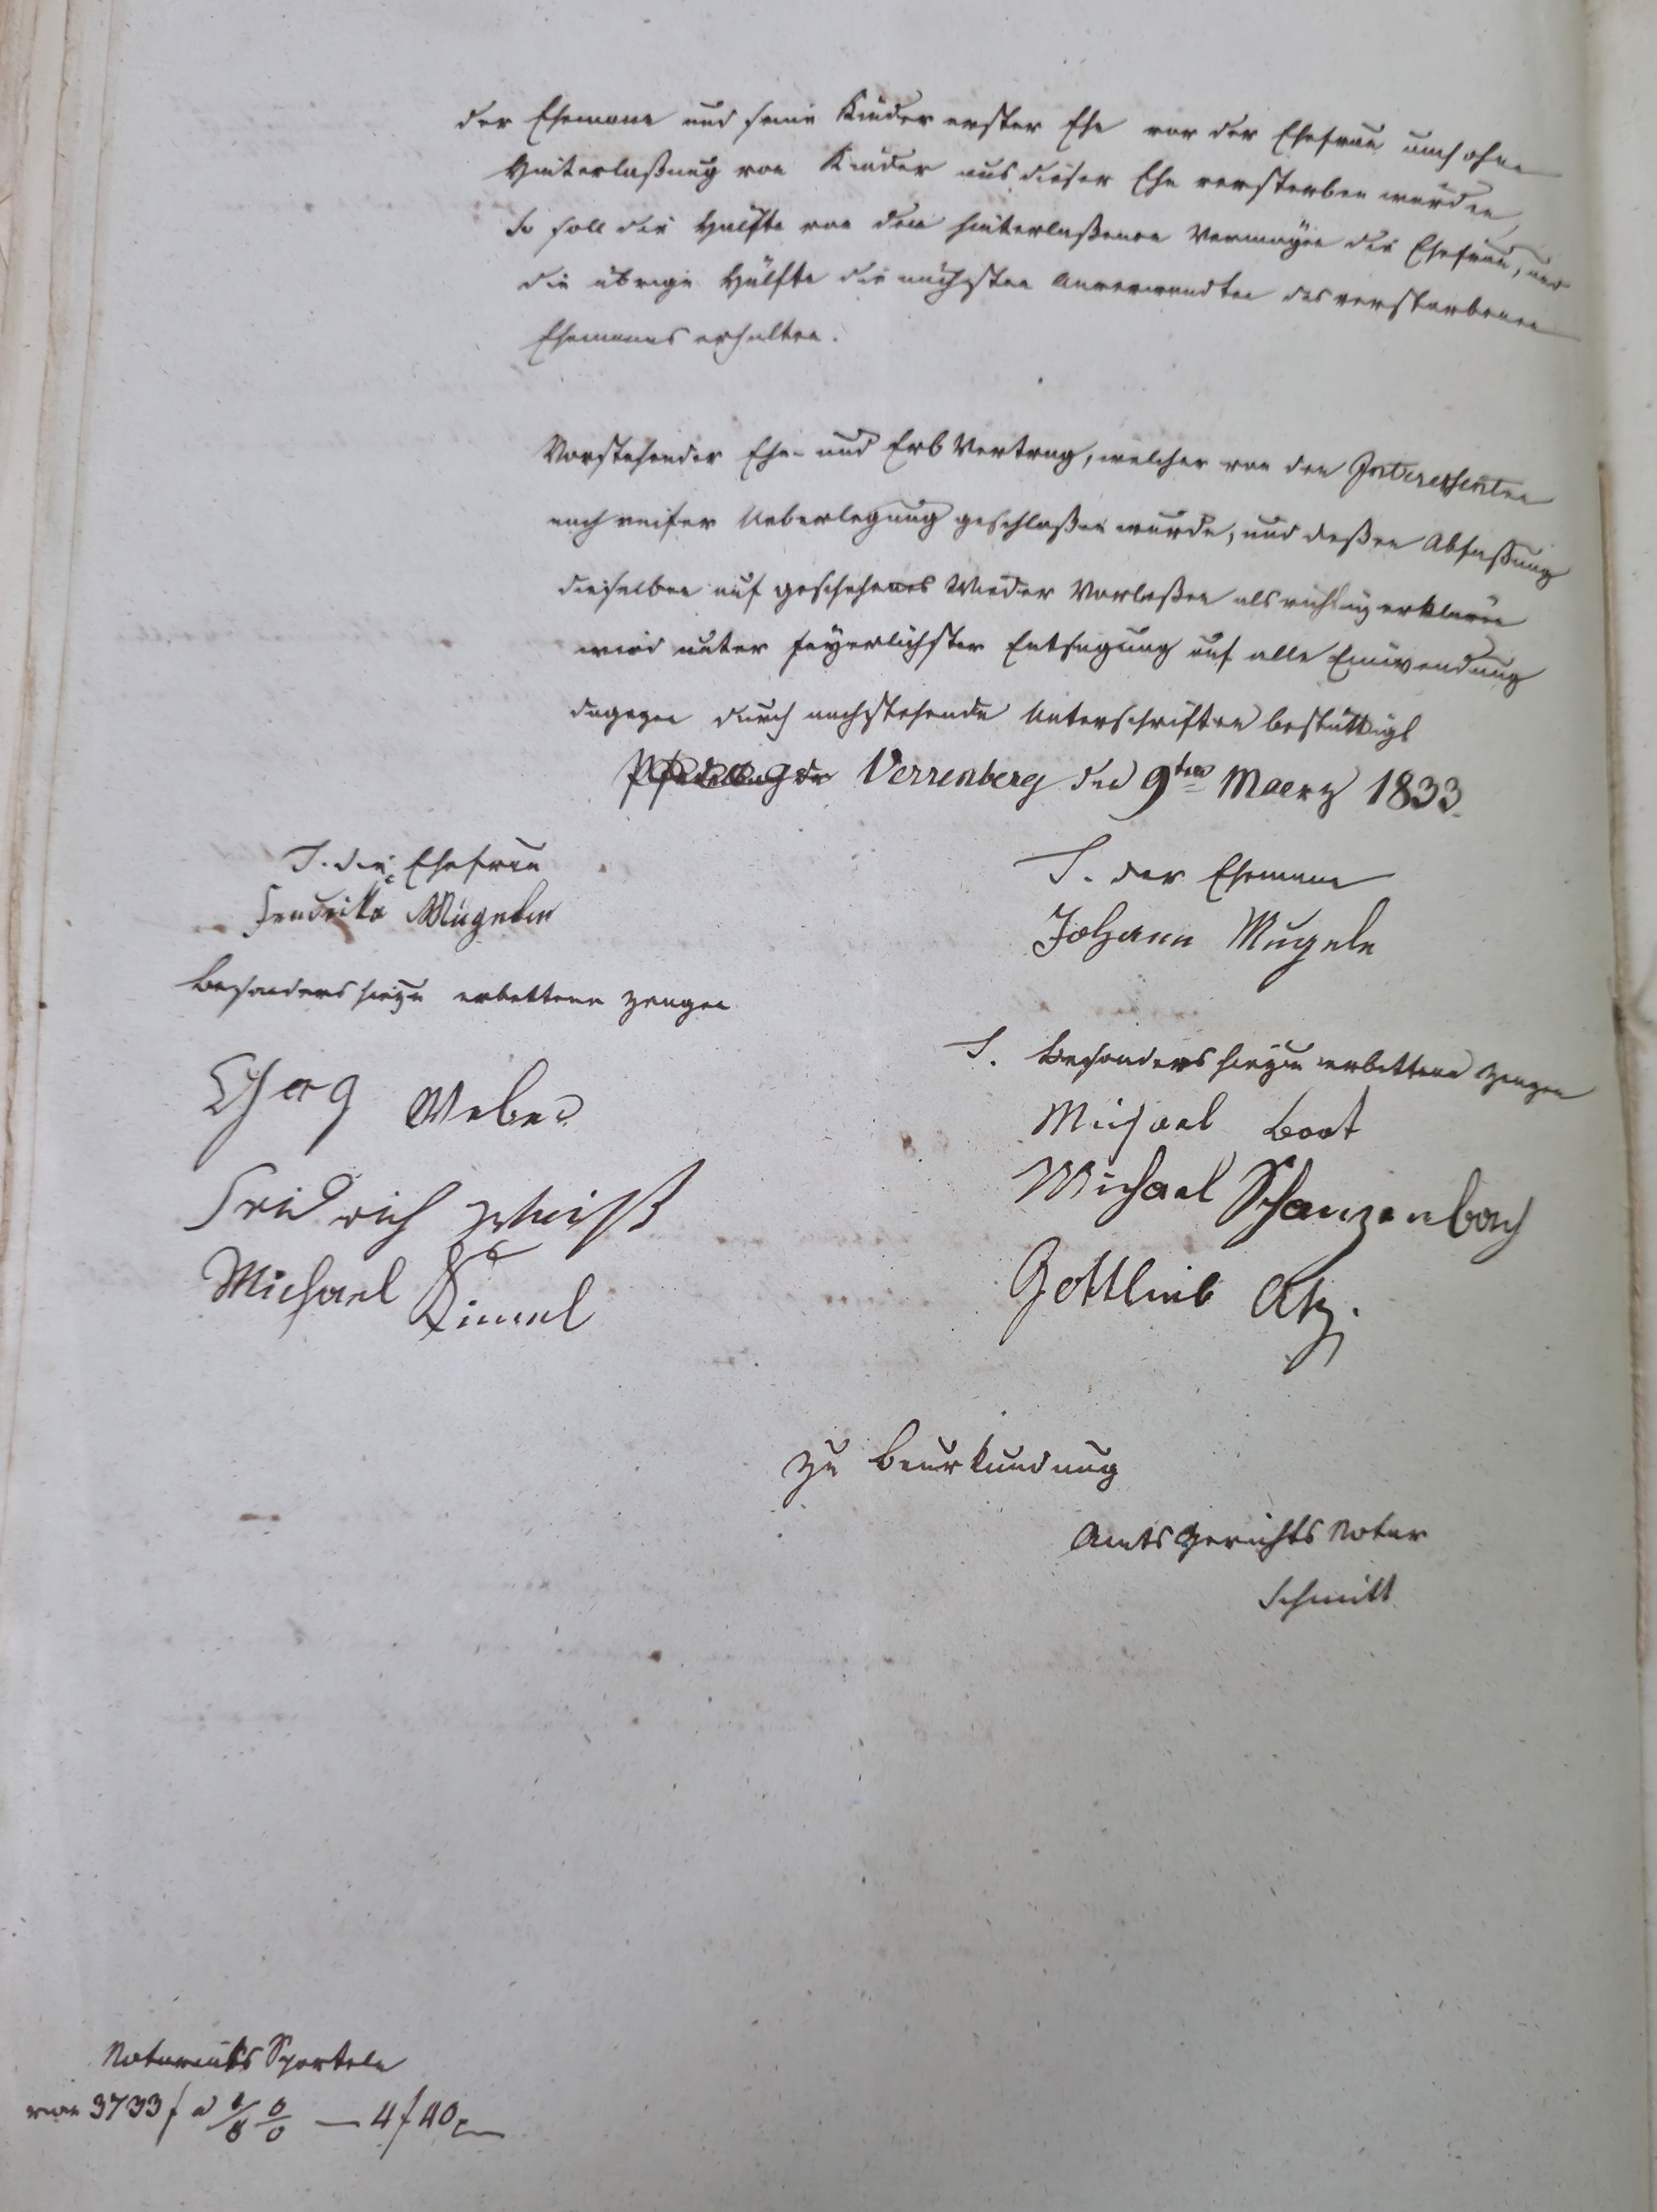 der Ehemann und seine Kinder erster Ehe vor der Ehefrau und ohne
Hinterlaßung von Kinder aus dieser Ehe versterben würden,
so soll die Hälfte von dem hinterlaßenen Vermögen die Ehefrau, und
die übrige Hälfte die nächsten Anverwandten des verstorbenen
Ehemanns erhalten.
Vorstehender Ehe- und Erb Vertrag, welcher von den Interessenten
nach reifer Ueberlegung geschloßen wurde, und deßen Abfaßung
dieselben auf geschehenes Wieder Vorlesßen als richtig erklären
wird unter feyerlichster Entsagung auf alle Einwendung
dagegen durch nachstehende Unterschriften bestättigt
Verrenberg den 9ten Maerz 1833.
T. die Ehefrau
T. der Ehemann
Mugelin
Johann Mugele
Besonders hiezu erbettene Zeugen
T. Besonders hiezu erbettene Zeugen
Weber
Michael
Fridrich
Michael Schanzenbach
Michael Kimmel
Gottlieb
zu Beurkundung
Amts Gerichts Notar
Schmitt
Notariats Sportel
von 3733 f a 1/8 0/0 — 4 f 40